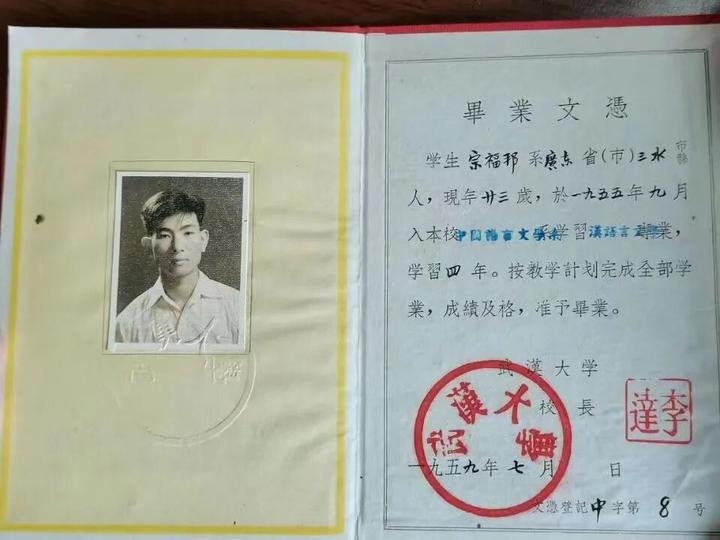 畢業文憑
学生 宗福邦 系 廣东 省(市) 三水 市縣
人,現年 廿三 歲,於一九五五年九月
入本校中国語言文學系学習漢語言文學專業,
学習四年。按教学計划完成全部学
業,成績及格,准予畢業。
武漢大学
校長
李達
武漢大學
一九五九年七月 日
文憑登記中字第 8 号